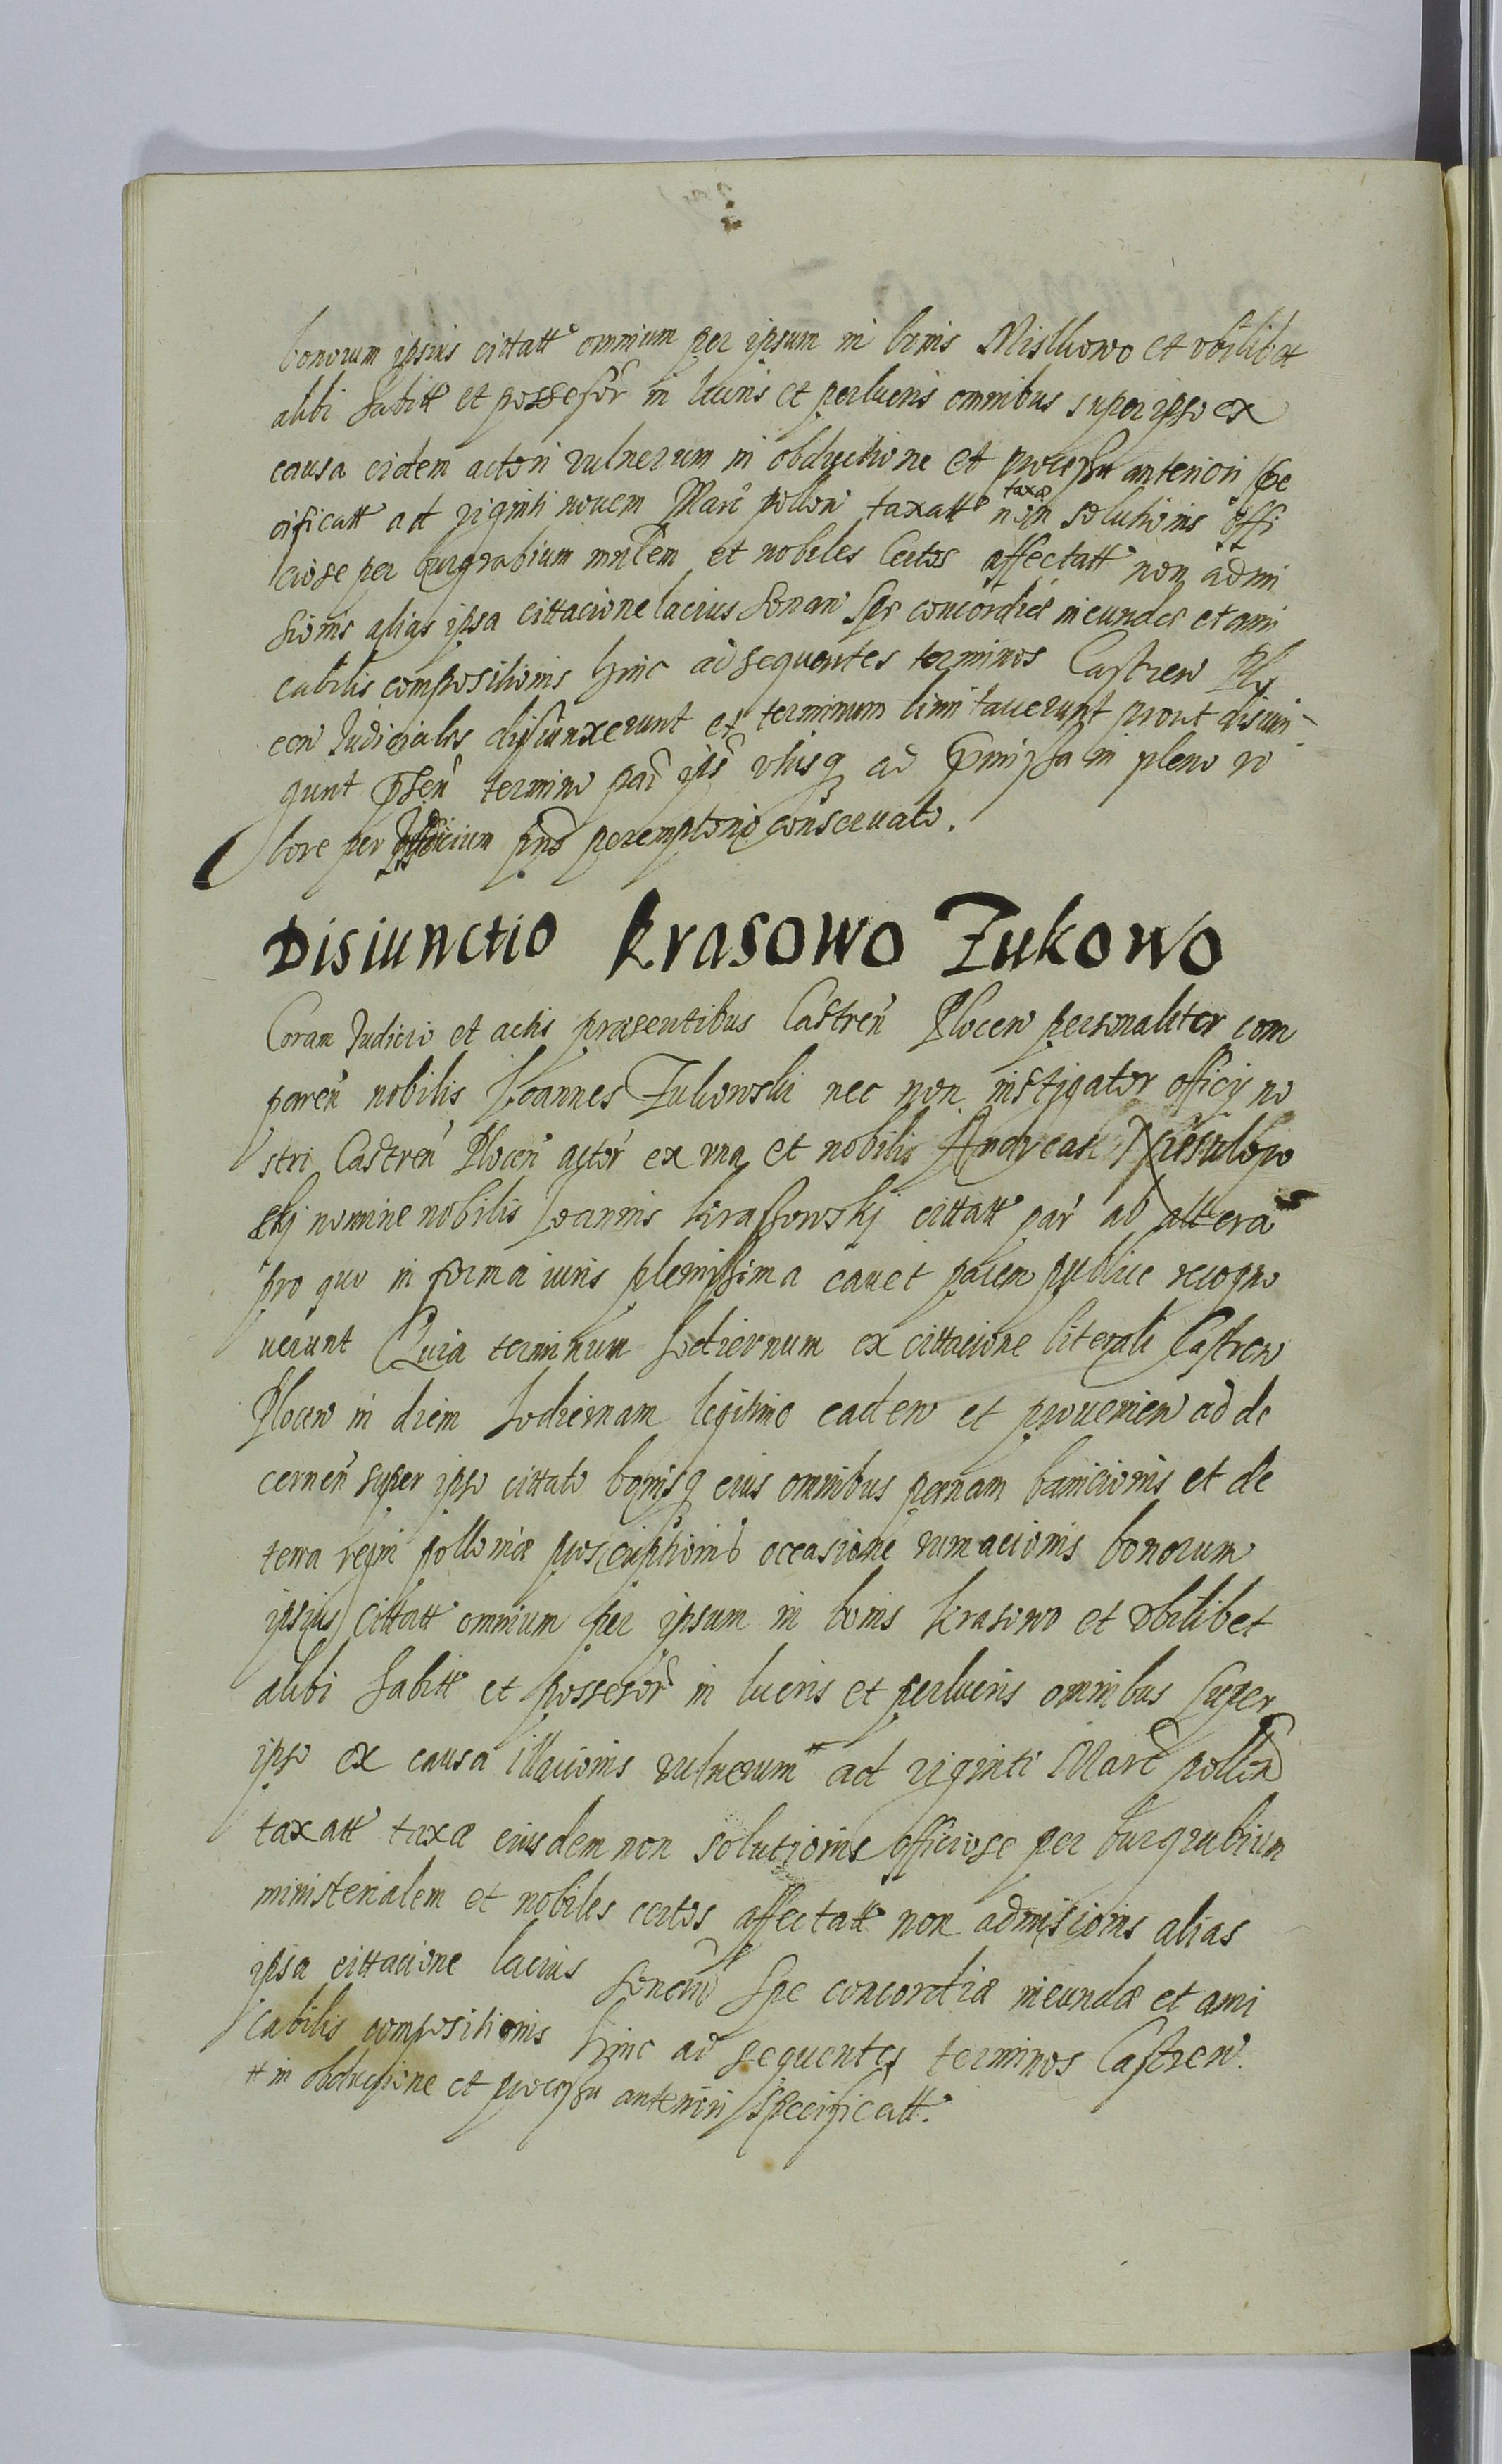 bonorum ipsius cittatt omnium per ipsum in bonis Misliwowo et vbilibet
alibi habitt et possessor in lucris et perlucris omnibus super ipso ex
causa eidem actori vulnerum in obductione et processu anteriori spe
cificatt ad viginti novem Marc pollon taxatt taxæ non solutionis offi
ciose per burgrabium mnlem et nobiles Certos affectatt non admi
sionis alias ipsa cittacione lacius sonan spe concordiæ ineundæ et ami
cabilis compositionis hinc ad sequentes terminos Castren Plo
cen Judiciales disiunxerunt et terminum limitauerunt prout disiun
gunt psen termino par ips vtrisq ad pmissa in pleno ro
bore per Judicium pns peremptorio conseruato.
Disiunctio Krasowo Zukowo
Coram Judicio et actis præsentibus Castren Plocen personaliter com
paren nobilis Joannes Zukowski nec non instigator officij no
stri Castren Plocen actor ex vna et nobilis Andreas
skj nomine nobilis Joannis Krassowskj cittatt par ab altera
pro quo in forma iuris plenissima cauet palem publice recogno
uerunt Quia terminum hodiernum ex cittacione literali Castren
Plocen in diem hodiernam legitime caden et prouenien ad de
cernen super ipso cittato bonisq eius omnibus pænam banicionis et de
terra regni polloniæ proscriptionis occasione rumacionis bonorum
ipsius cittatt omnium per ipsum in bonis Krasowo et vbilibet
alibi habitt et possesor in lucris et perlucris omnibus super
ipso ex causa illacionis vulnerum # ad viginti Marc pollon
taxatt taxæ eiusdem non solutionis officiose per burgrabium
ministerialem et nobiles certos affectatt non admisionis alias
ipsa cittacione lacius sonan spe concordiæ ineundæ et ami
cabilis compositionis hinc ad sequentes terminos Castren
# in obductione et processu anteriori specificatt.